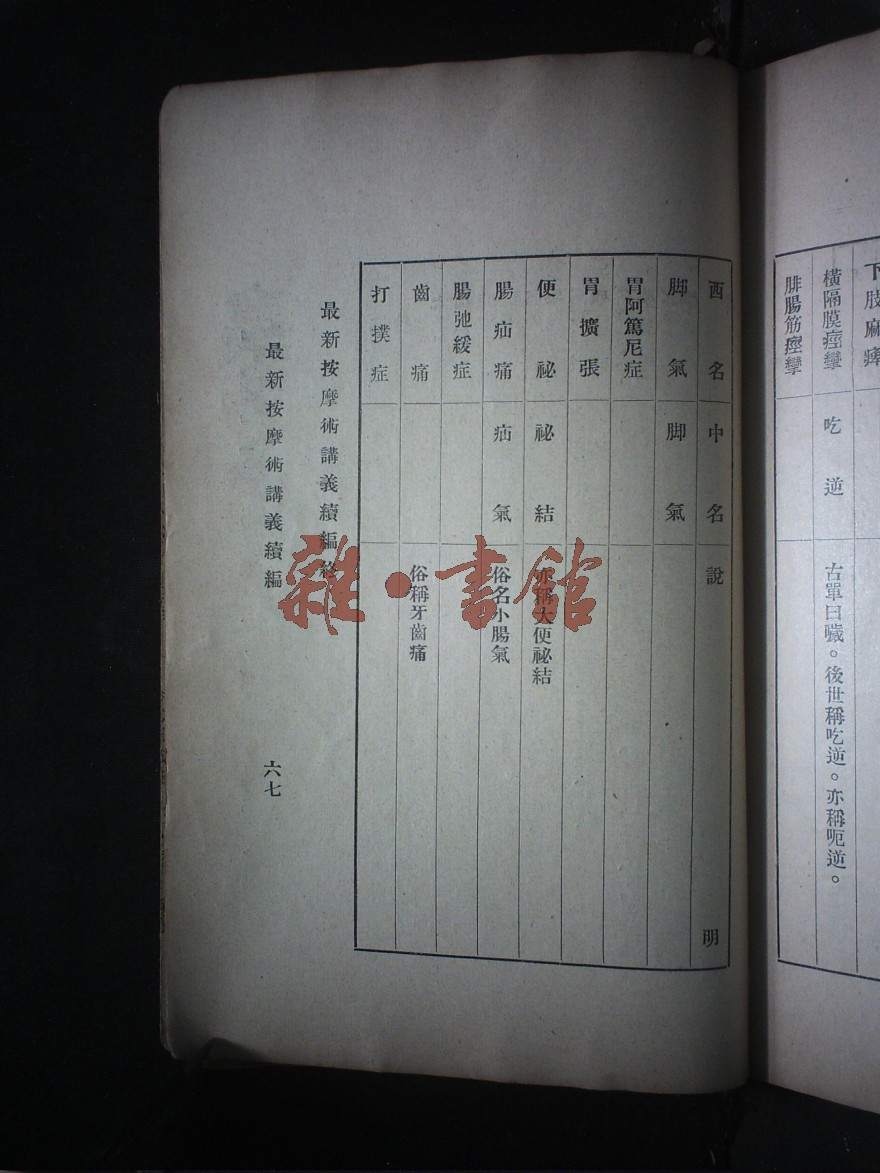 下肢麻痺
橫隔膜痙攣 吃逆 古單曰噦。後世稱吃逆。亦稱呃逆。
腓腸筋痙攣
西名 中名 說明
脚氣 脚氣
胃阿篤尼症
胃擴張
便祕 祕結 亦稱大便祕結
腸疝痛 疝氣 俗名小腸氣
腸弛緩症
齒痛 俗稱牙齒痛
打撲症
最新按摩術講義續編終
最新按摩術講義續編 六七
雜·書館